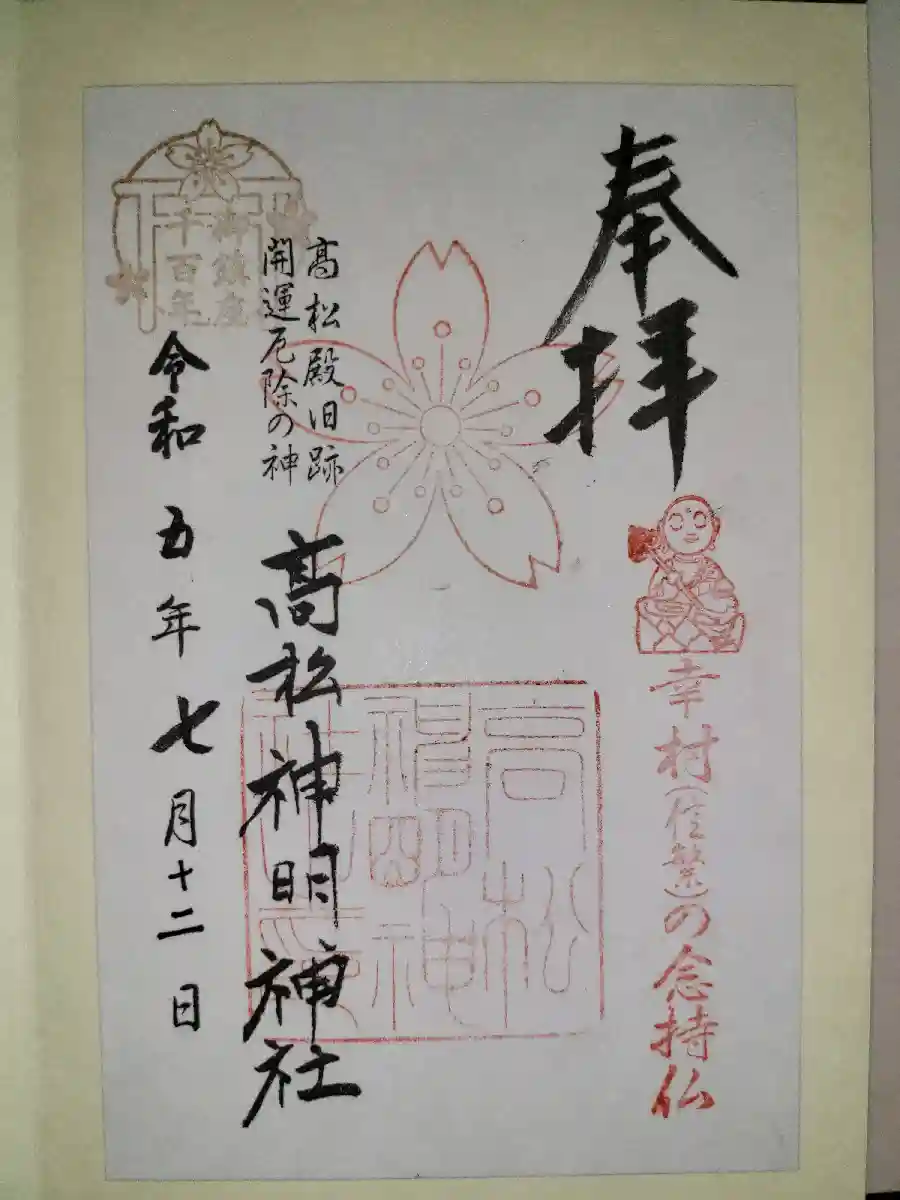 奉拝
幸村(信繁)の念持仏
高松
神明神
社
髙松殿旧跡
開運厄除の神
髙松神明神社
御鎮座
千百年
令和五年七月十二日